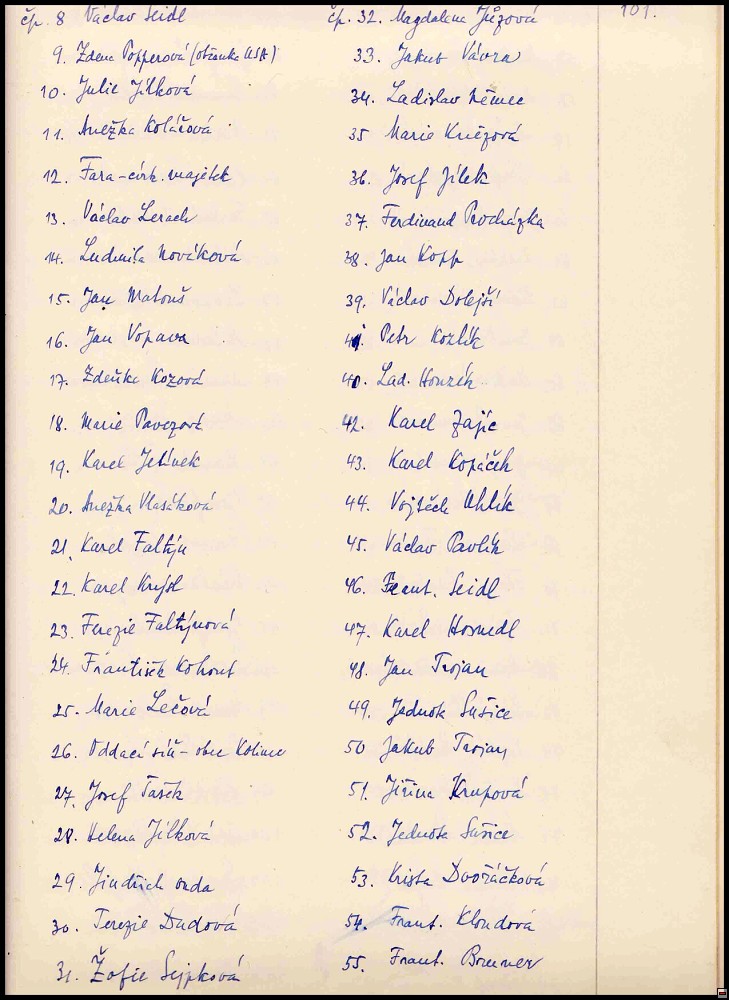 101.
čp. 8 Václav Seidl
9. Zdena Popperová (občanka USA)
10. Julie Jílková
11. Anežka Kolářová
12. Fara-círk. majetek
13. Václav Lerach
14. Ludmila Nováková
15. Jan Matouš
16. Jan Vopava
17. Zdeňka Kozová
18. Marie Pavezová
19. Karel Jelínek
20. Anežka Vlasáková
21. Karel Faltýn
22. Karel Krýsl
23. Terezie Faltýnová
24. František Kohout
25. Marie Lečová
26. Oddací síň - obec Kolinec
27. Josef Tašek
28. Helena Jílková
29. Jindřich Duda
30. Terezie Dudová
31. Žofie Sejpková
čp. 32. Magdalena Jůzová
33. Jakub Vávra
34. Ladislav Němec
35 Marie Knězová
36. Josef Jílek
37. Ferdinand Procházka
38. Jan Kopp
39. Václav Dolejší
41. Petr Kozlík
40. Lad. Honzík
42. Karel Zajíc
43. Karel Kopáček
44. Vojtěch Uhlík
45. Václav Pavlík
46. Frant. Seidl
47. Karel Hosnedl
48. Jan Trojan
49. Jednota Sušice
50 Jakub Trojan
51. Jiřina Krupová
52. Jednota Sušice
53. Krista Dvořáčková
54. Frant. Kloudová
55. Frant. Brunner